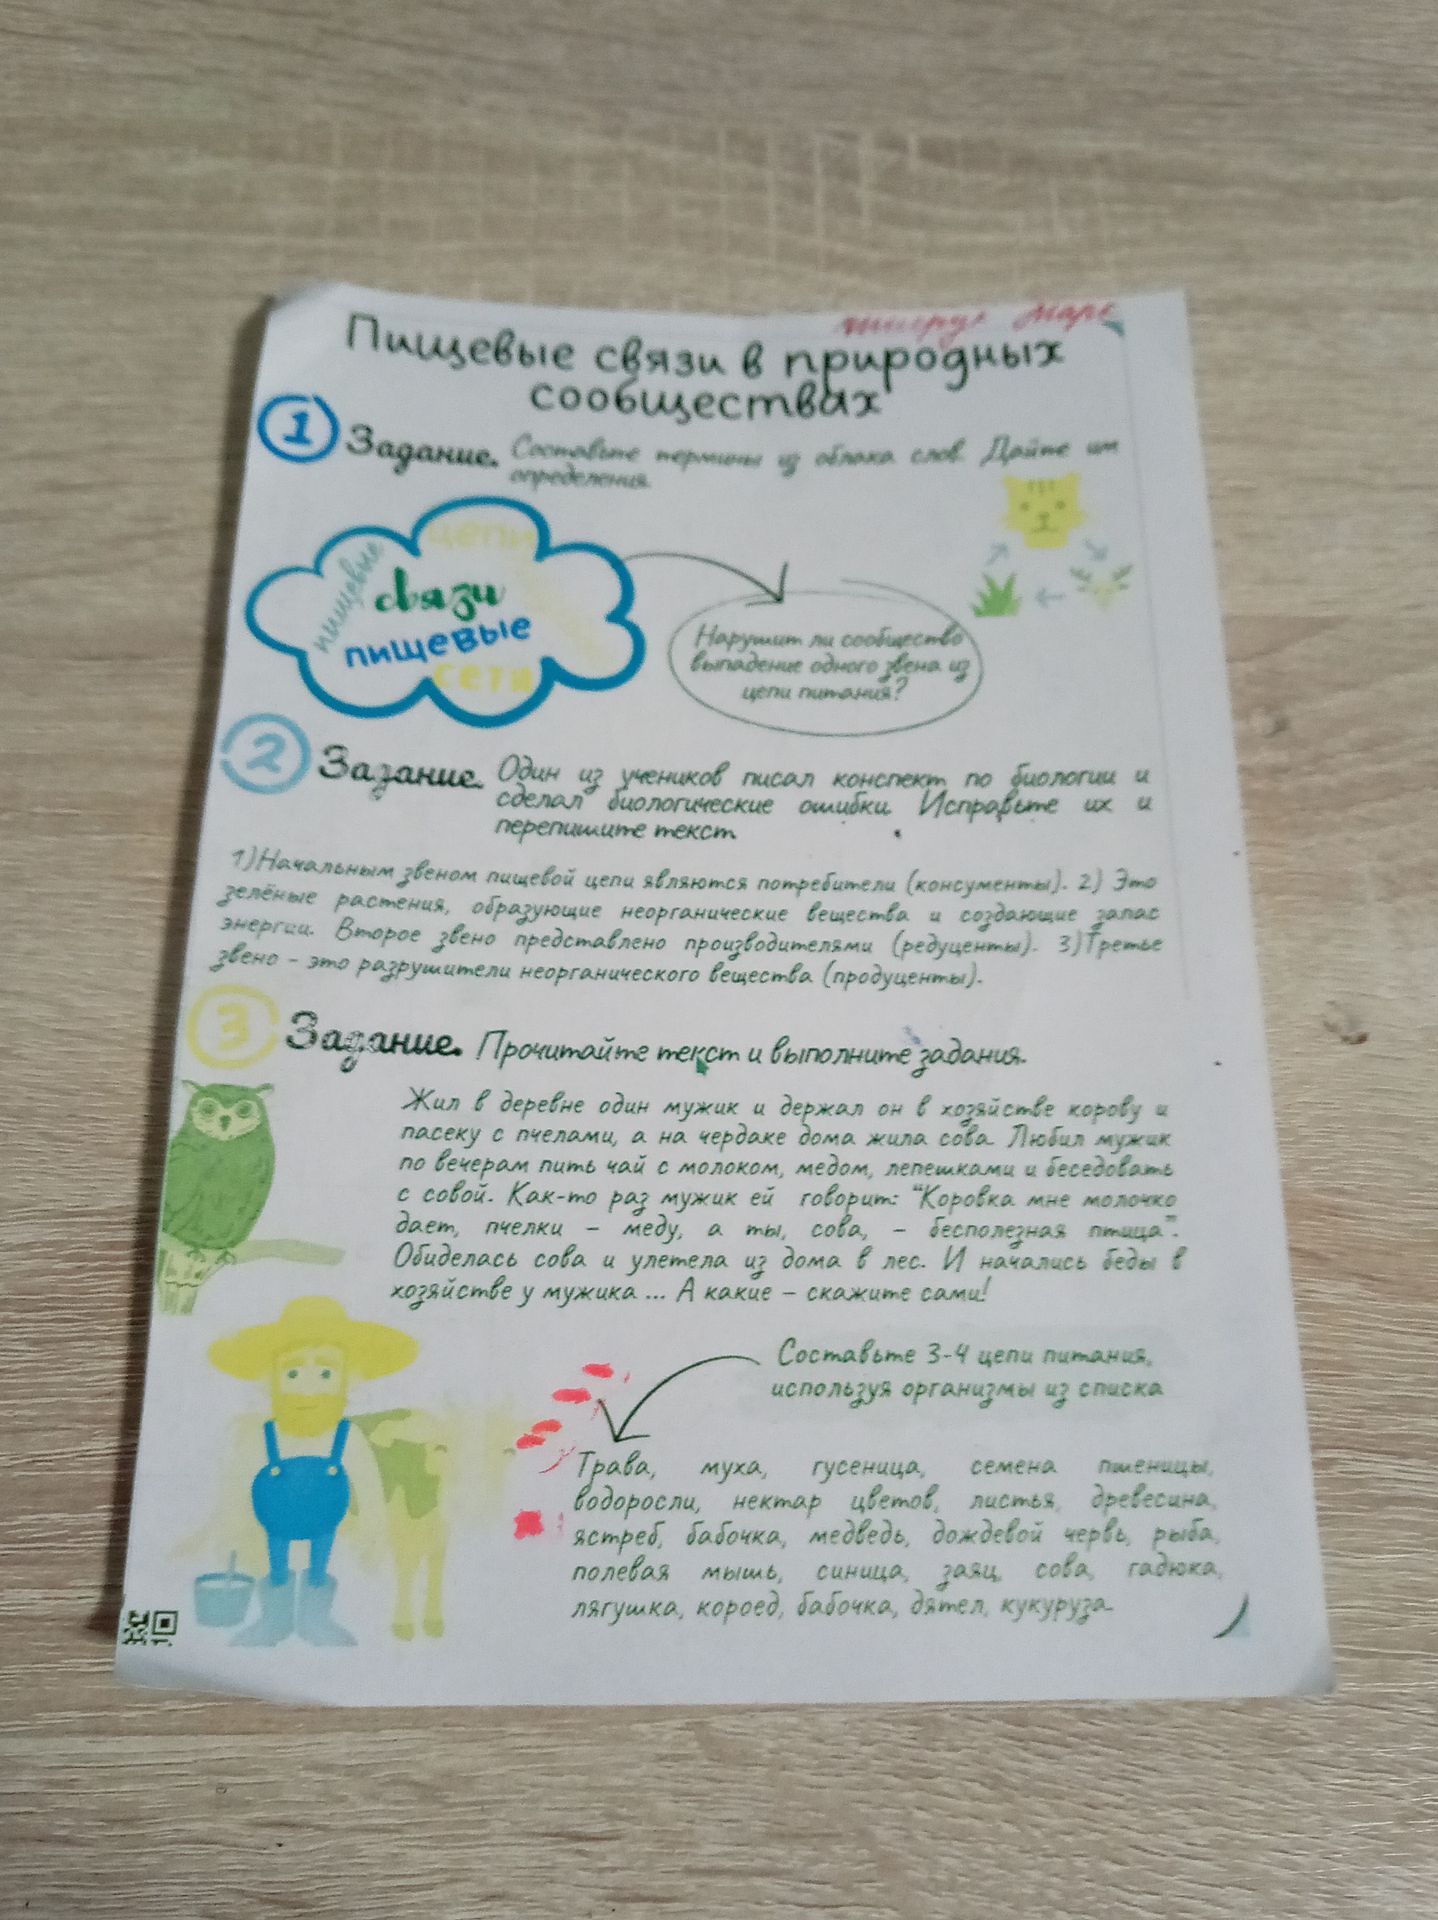 Пищевые связи в природных
сообществах
1 Задание. Составьте термины из облака слов. Дайте им
определения.
цепи
пищевые
связи
пищевые
сети
Нарушит ли сообщество
выпадение одного звена из
цепи питания?
2 Задание. Один из учеников писал конспект по биологии и
сделал биологические ошибки. Исправьте их и
перепишите текст.
1)Начальным звеном пищевой цепи являются потребители (консументы). 2) Это
зелёные растения, образующие неорганические вещества и создающие запас
энергии. Второе звено представлено производителями (редуценты). 3)Третье
звено - это разрушители неорганического вещества (продуценты).
3 Задание. Прочитайте текст и выполните задания.
Жил в деревне один мужик и держал он в хозяйстве корову и
пасеку с пчелами, а на чердаке дома жила сова. Любил мужик
по вечерам пить чай с молоком, медом, лепешками и беседовать
с совой. Как-то раз мужик ей говорит: "Коровка мне молочко
дает, пчелки - меду, а ты, сова, - бесполезная птица".
Обиделась сова и улетела из дома в лес. И начались беды в
хозяйстве у мужика ... А какие - скажите сами!
Составьте 3-4 цепи питания,
используя организмы из списка
Трава, муха, гусеница, семена пшеницы,
водоросли, нектар цветов, листья, древесина,
ястреб, бабочка, медведь, дождевой червь, рыба,
полевая мышь, синица, заяц, сова, гадюка,
лягушка, короед, бабочка, дятел, кукуруза.